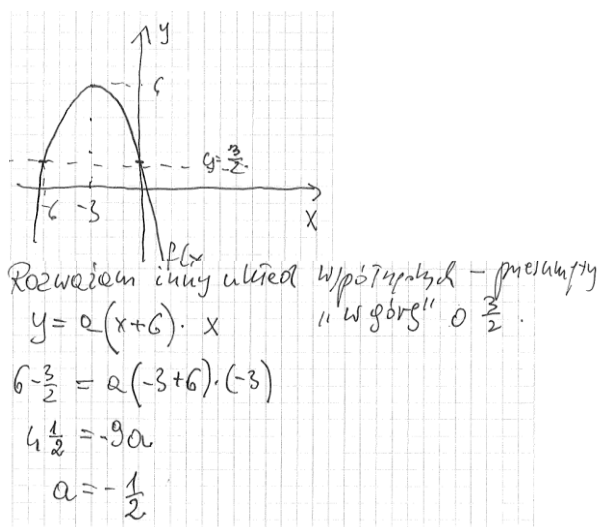 y
6
y=3/2
-6 -3
x
f(x
Rozważam inny układ współrzędnych – przesunięty
y = a(x+6)· x „w górę" o 3/2.
6-3/2 = a(-3+6)·(-3)
4 1/2 = -9a
a = -1/2